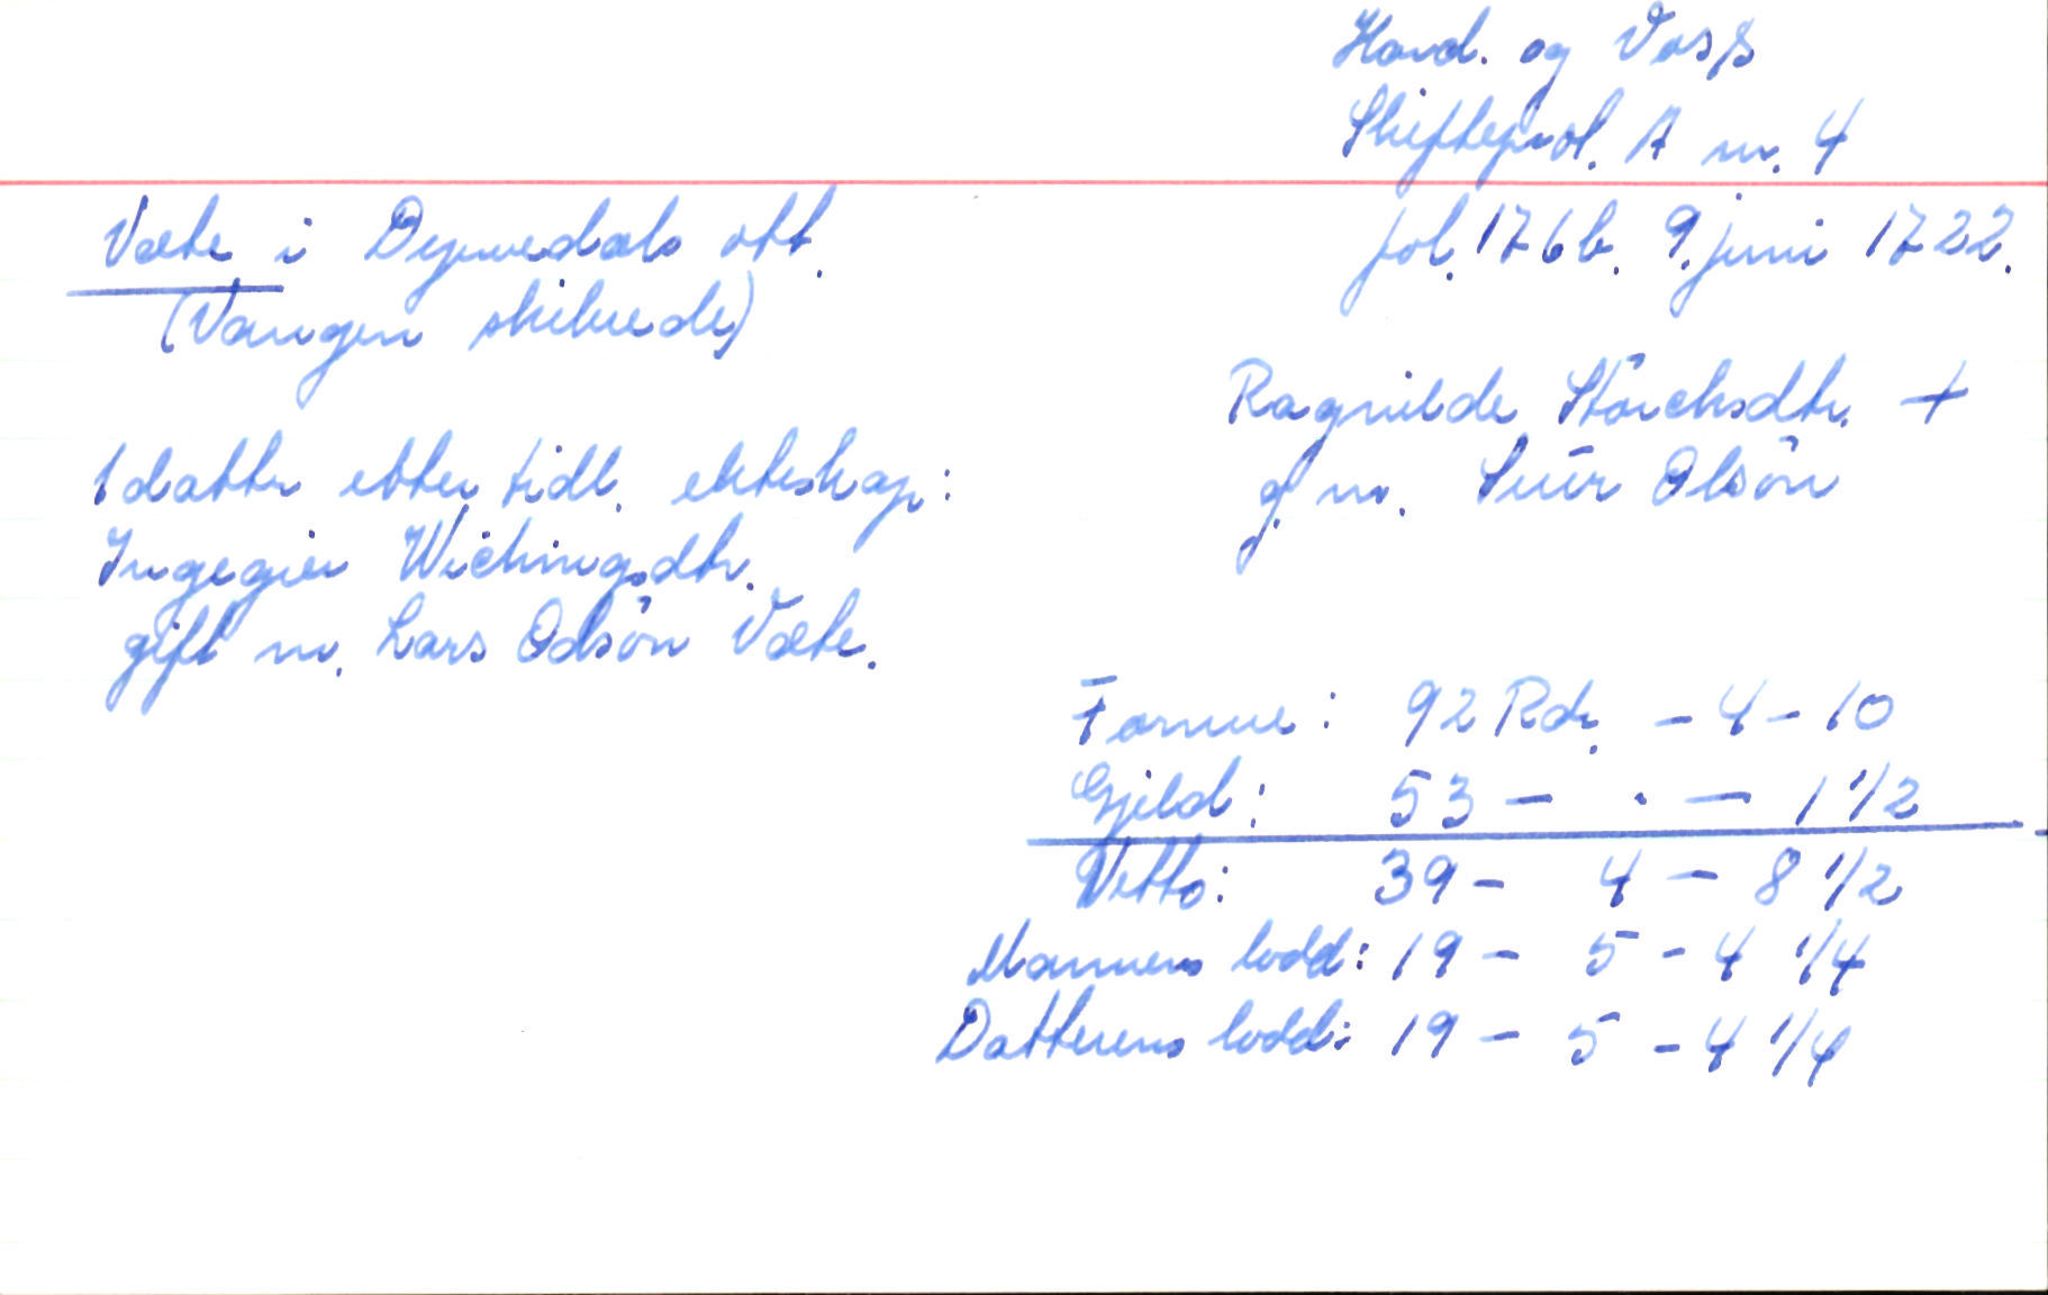 Hard. og Voss
Skifteprol. A nr. 4
fol. 176b. 9. juni 1722.
Væte i Dyrvedals ott.
(Vangen skibrede)
Ragnilde Storchsdtr. +
g. m. Siur Olsøn
1 datter etter tidl. ekteskap:
Ingegier Wichingsdtr.
gift m. Lars Odsøn Væte.
Formue: 92 Rdr. - 4 - 10
Gjeld: 53 - . - 1 1/2
Netto: 39 - 4 - 8 1/2
Mannens lodd: 19 - 5 - 4 1/4
Datterens lodd: 19 - 5 - 4 1/4